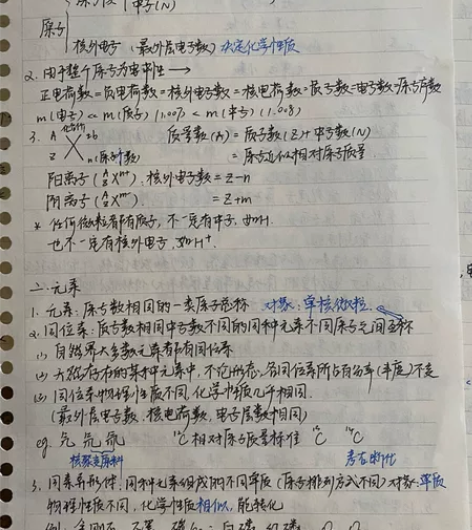 中子(N)
原子
核外电子 (最外层电子数) 决定化学性质
2. 由于整个原子为电中性 →
正电荷数=负电荷数=核外电子数=核电荷数=质子数=电子数=原子序数
m(电子) << m(质子) (1.007) < m(中子) (1.008)
3. A 化合价 ±b 质量数(A) = 质子数(Z)+中子数(N)
X
Z n(原子个数) = 原子近似相对原子质量.
阳离子 (X). 核外电子数 = Z-n
阴离子 (X) = Z+m
* 任何微粒都有质子, 不一定有中子, 如H
也不一定有核外电子, 如H⁺.
二. 元素
1. 元素: 质子数相同的一类原子总称 对象: 单核微粒
2. 同位素: 质子数相同中子数不同的同种元素不同原子之间互称
(1) 自然界大多数元素都有同位素
(2) 天然存在的某种元素中, 不论游离, 各同位素所占百分率(丰度)不变
(3) 同位素物理性质不同, 化学性质几乎相同.
(最外层电子数, 核电荷数, 电子层数相同)
eg. 氕 氘 氚 ¹²C 相对原子质量标准 C ¹⁴C
核聚变原料 考古断代
3. 同素异形体: 同种元素组成的不同单质 (原子排列方式不同) 对象: 单质
物理性质不同, 化学性质相似, 能转化
例: 金刚石 石墨